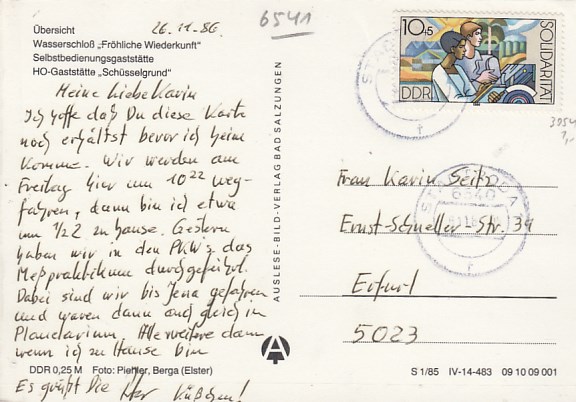 Übersicht
Wasserschloß „Fröhliche Wiederkunft"
Selbstbedienungsgaststätte
HO-Gaststätte „Schüsselgrund"
26.11.86
6541
Meine liebe Karin
Ich hoffe daß Du diese Karte
noch erhältst bevor ich heim
komme. Wir werden am
Freitag hier um 10 22 weg-
fahren, dann bin ich etwa
um 1/2 2 zu hause. Gestern
haben wir in den PKW's das
Meßpraktikum durchgeführt.
Dabei sind wir bis Jena gefahren
und waren dann auch gleich in
Planetarium. Alles weitere dann
wenn ich zu Hause bin
Es grüßt Die
Küßchen!
DDR 0,25 M Foto: Piehler, Berga (Elster)
AUSLESE-BILD-VERLAG BAD SALZUNGEN
A
10+5
DDR
SOLIDARITÄT
STADTRODA 1
6540
Frau Karin Seitz
Ernst-Schneller-Str. 34
Erfurt
5023
S 1/85 IV-14-483 09 10 09 001